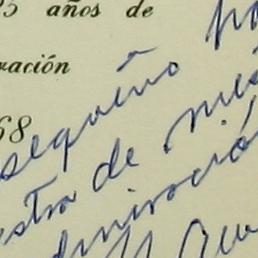 25 años de
ración
68
pequeño
stra de nues
dmiración